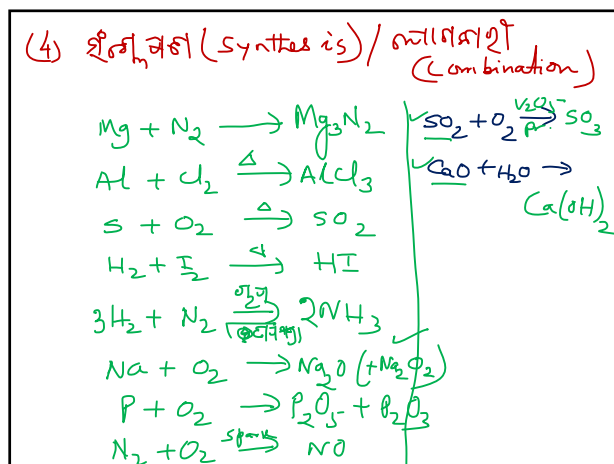 (4) সংশ্লেষণ (Synthesis) /
(Combination)
Mg + N₂ → Mg₃N₂
Al + Cl₂ Δ→ AlCl₃
S + O₂ Δ→ SO₂
H₂ + I₂ Δ→ HI
3H₂ + N₂ 2NH₃
Na + O₂ → Na₂O (+Na₂O₂)
P + O₂ → P₂O₅ + P₂O₃
N₂ + O₂ spark→ NO
SO₂ + O₂ V₂O₅→ SO₃
CaO + H₂O →
Ca(OH)₂